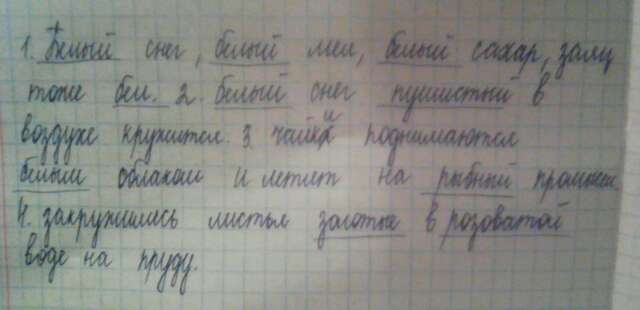 1. Белый снег, белый мел, белый сахар, заяц
тоже бел. 2. белый снег пушистый в
воздухе кружится. 3. чайки поднимаются
белым облаком и летят на рыбный промысел.
4. закружились листья золотые в розоватой
воде на пруду.